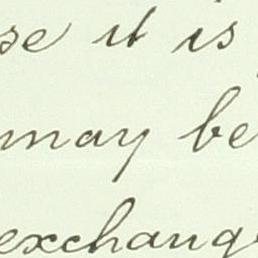 se it is
may be
exchang